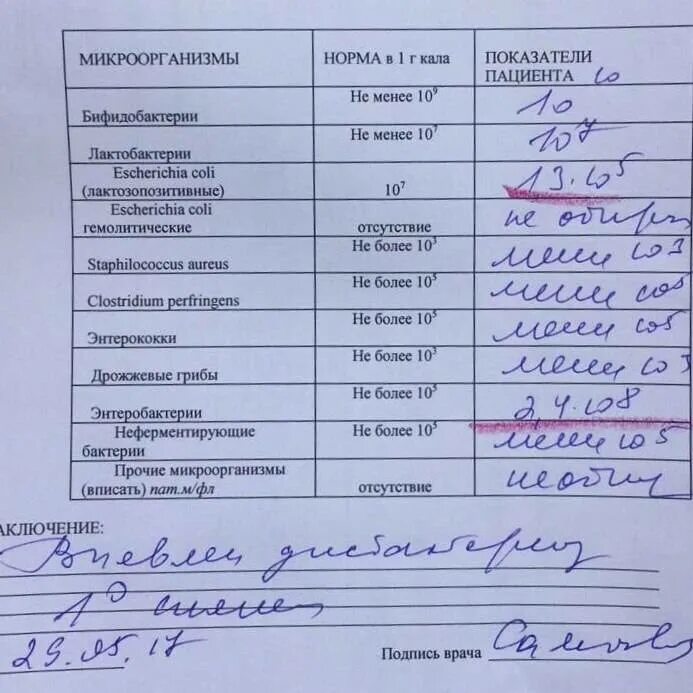 МИКРООРГАНИЗМЫ НОРМА в 1 г кала ПОКАЗАТЕЛИ ПАЦИЕНТА
Бифидобактерии Не менее 10⁹ 10¹⁰
Лактобактерии Не менее 10⁷ 10⁷
Escherichia coli (лактозопозитивные) 10⁷ 13·10⁵
Escherichia coli гемолитические отсутствие не
Staphilococcus aureus Не более 10³ менее 10³
Clostridium perfringens Не более 10⁵ менее 10⁵
Энтерококки Не более 10⁵ менее 10⁵
Дрожжевые грибы Не более 10³ менее 10³
Энтеробактерии Не более 10⁵ 2,4·10⁸
Неферментирующие бактерии Не более 10⁵ менее 10⁵
Прочие микроорганизмы (вписать) пат.м/фл отсутствие не
АКЛЮЧЕНИЕ:
дисбактериоз
1
29.05.17 Подпись врача